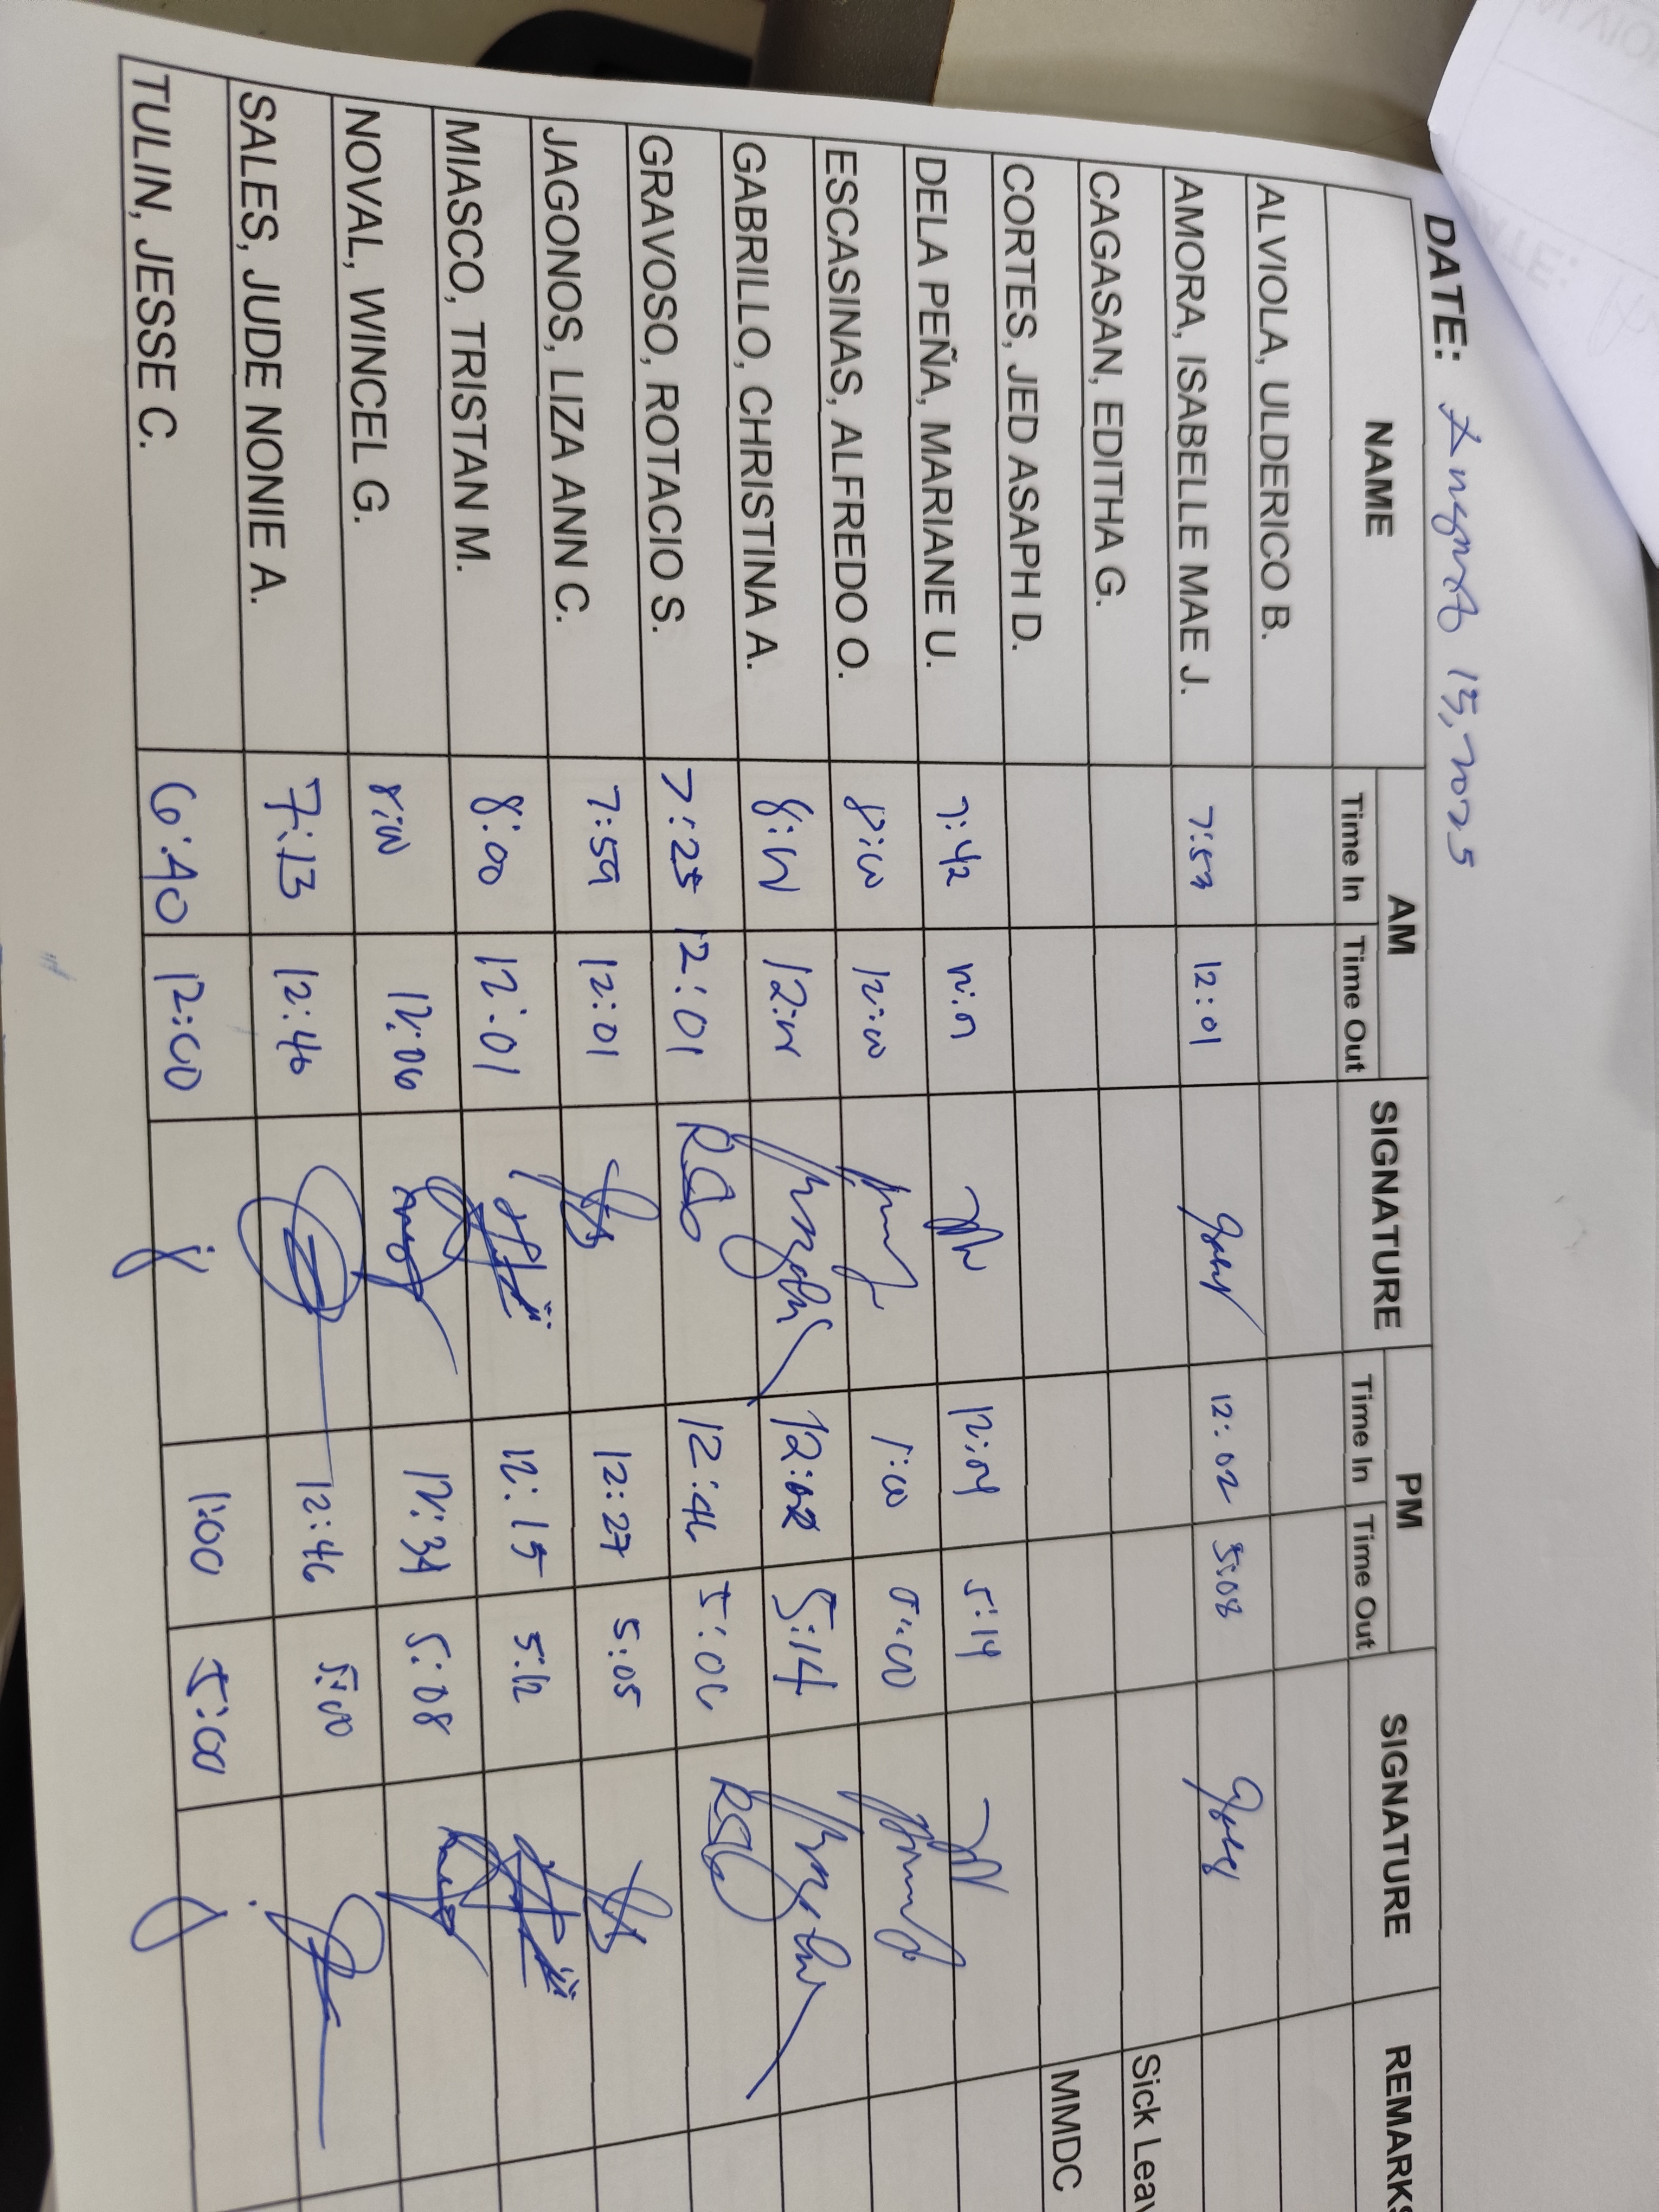 DATE: August 15, 2025
NAME AM SIGNATURE PM SIGNATURE REMARKS
Time In Time Out Time In Time Out
ALVIOLA, ULDERICO B.
AMORA, ISABELLE MAE J. 7:53 12:01 12:02 5:08
CAGASAN, EDITHA G. Sick Leav
CORTES, JED ASAPH D. MMDC
DELA PEÑA, MARIANE U. 7:42 5:14
ESCASINAS, ALFREDO O. 8:00 12:00 1:00
GABRILLO, CHRISTINA A. 5:14
GRAVOSO, ROTACIO S. 7:25 12:01 12:46 5:06
JAGONOS, LIZA ANN C. 7:59 12:01 12:27 5:05
MIASCO, TRISTAN M. 8:00 12:01 12:15 5:12
NOVAL, WINCEL G. 8:00 12:06 12:34 5:08
SALES, JUDE NONIE A. 7:13 12:46 5:00
TULIN, JESSE C. 6:40 12:00 1:00 5:00